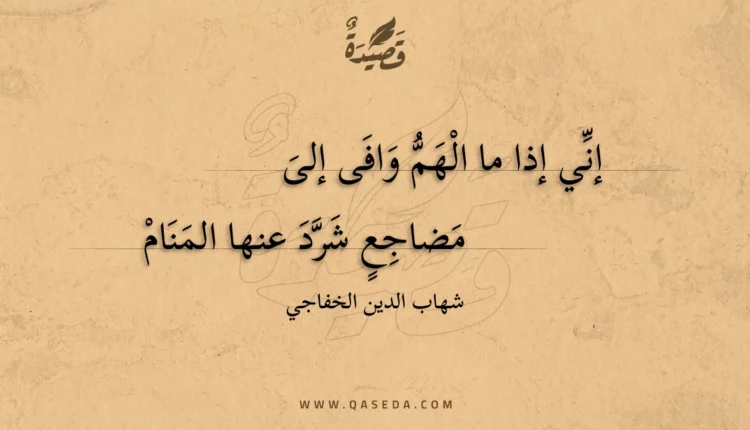 قَصِيْدَةٌ
إنِّي إذا ما الْهَمُّ وَافَى إلىَ
مَضاجِعٍ شَرَّدَ عنها المَنَامْ
شهاب الدين الخفاجي
WWW.QASEDA.COM